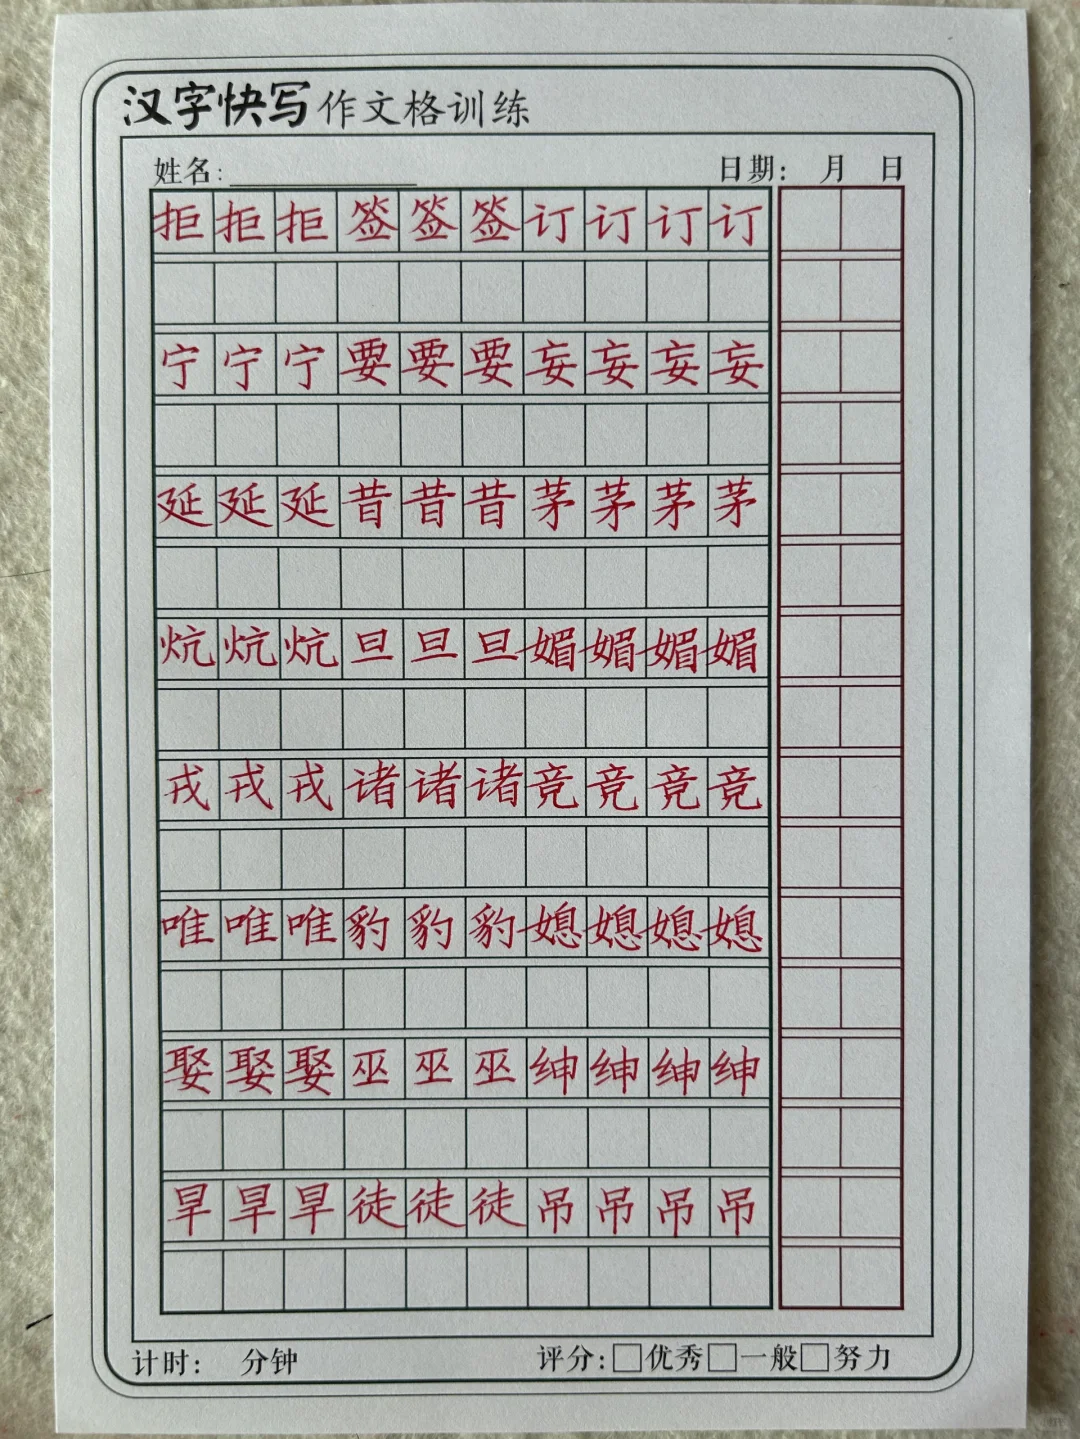 汉字快写作文格训练
姓名: 日期: 月 日
拒拒拒签签签订订订订
宁宁宁要要要妄妄妄妄
延延延昔昔昔茅茅茅茅
炕炕炕旦旦旦媚媚媚媚
戎戎戎诸诸诸竞竞竞竞
唯唯唯豹豹豹媳媳媳媳
娶娶娶巫巫巫绅绅绅绅
旱旱旱徒徒徒吊吊吊吊
计时: 分钟 评分:□优秀□一般□努力